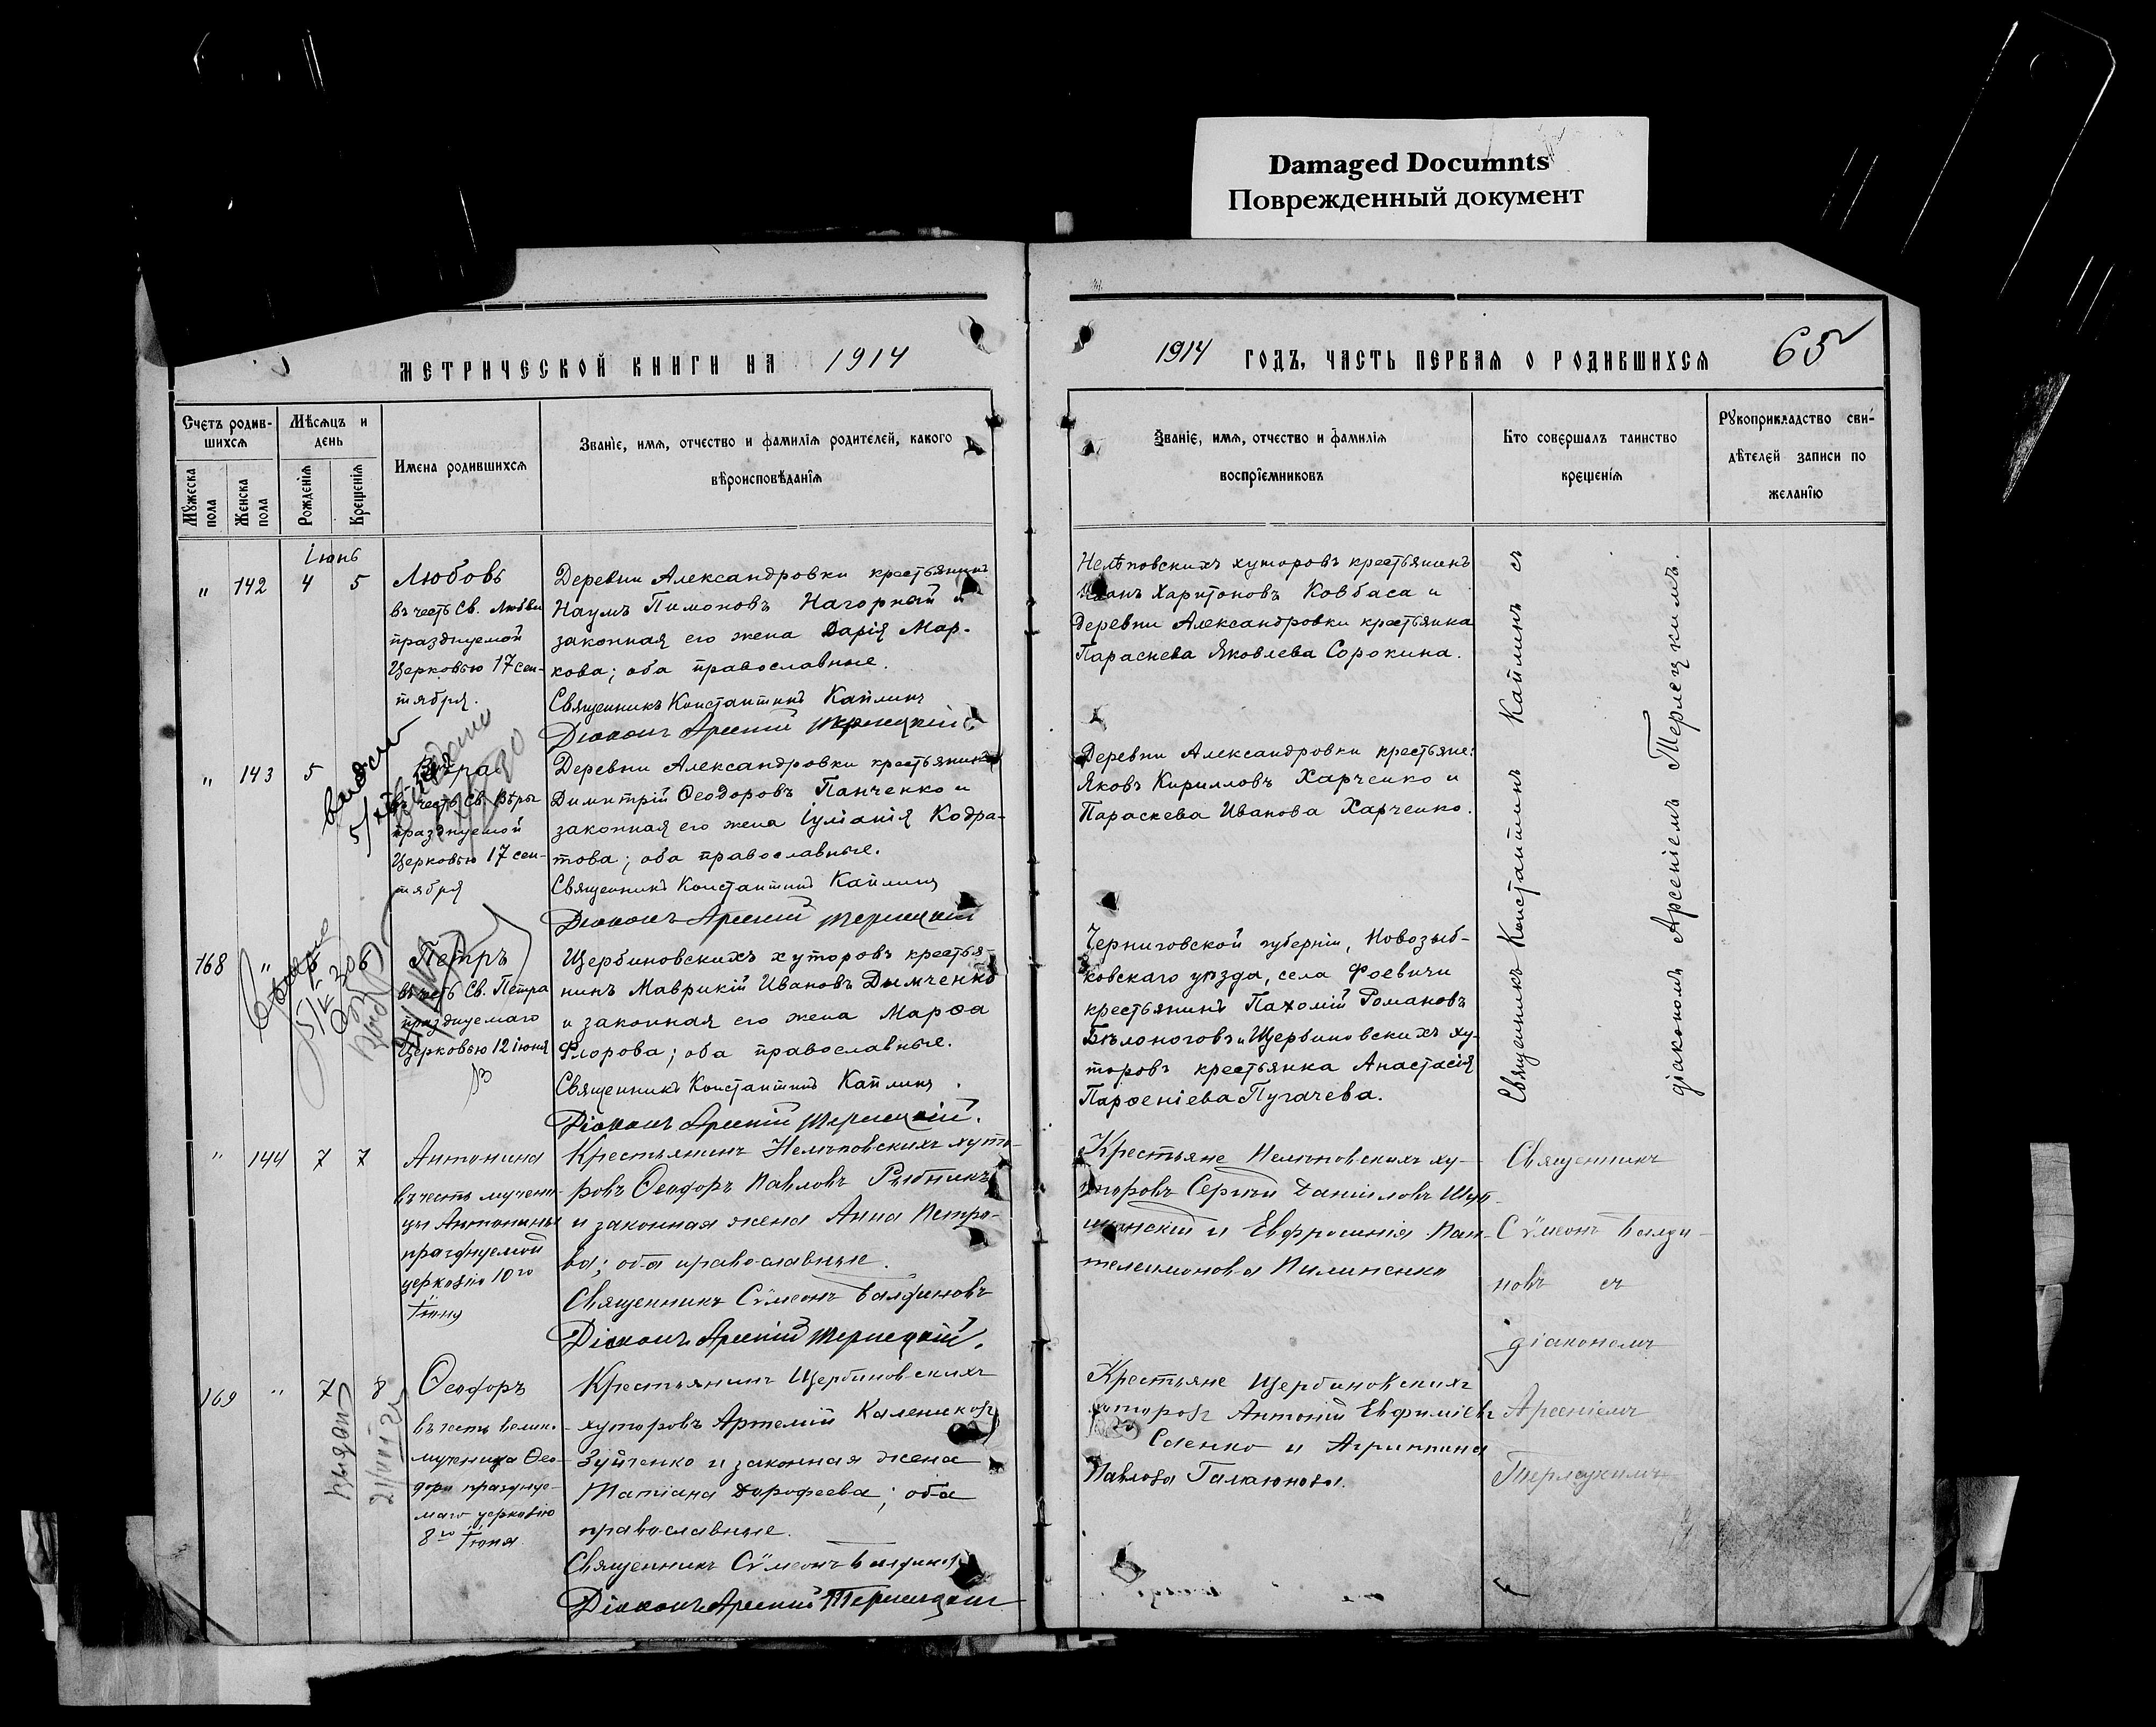 Damaged Documnts
Поврежденный документ
МЕТРИЧЕСКОЙ КНИГИ НА 1914
1914 ГОДЪ, ЧАСТЬ ПЕРВАЯ О РОДИВШИХСЯ
65
Счетъ родив-
шихся
Мѣсяцъ и
день
Имена родившихся
Званіе, имя, отчество и фамилія родителей, какого
вѣроисповѣданія
Мужеска
пола
Женска
пола
Рожденія
Крещенія
Званіе, имя, отчество и фамилія
воспріемниковъ
Кто совершалъ таинство
крещенія
Рукоприкладство сви-
дѣтелей записи по
желанію
Іюнь
" 142 4 5
Любовь
въ честь Св. Любви
празднуемой
Церковью 17 сен-
тября.
Деревни Александровки крестьянинъ
Наумъ Пимоновъ Нагорный и
законная его жена Дарія Мар-
кова; оба православные.
Священникъ Константинъ Каплинъ
Діаконъ Арсеній Терлецкій
Нелѣповскихъ хуторовъ крестьянинъ
Иванъ Харитоновъ Ковбаса и
деревни Александровки крестьянка
Параскева Яковлева Сорокина.
" 143 5
Вѣра
въ честь Св. Вѣры
празднуемой
Церковью 17 сен-
тября
Деревни Александровки крестьянинъ
Димитрій Ѳеодоровъ Панченко и
законная его жена Іуліанія Кодра-
това; оба православные.
Священникъ Константинъ Каплинъ
Діаконъ Арсеній Терлецкій
Деревни Александровки крестьяне:
Яковъ Кирилловъ Харченко и
Параскева Иванова Харченко.
168 " 6
Петръ
въ честь Св. Петра
празднуемаго
Церковью 12 іюня
Щербиновскихъ хуторовъ крестья-
нинъ Маврикій Ивановъ Дымченко
и законная его жена Марѳа
Флорова; оба православные.
Священникъ Константинъ Каплинъ.
Діаконъ Арсеній Терлецкій.
Черниговской губерніи, Новозыб-
ковскаго уѣзда, села Фоевичи
крестьянинъ Пахомій Романовъ
Бѣлоноговъ и Щербиновскихъ ху-
торовъ крестьянка Анастасія
Парѳеніева Пугачева.
Священникъ Константинъ Каплинъ съ
діакономъ Арсеніемъ Терлецкимъ.
" 144 7 7
Антонина
въ честь мучени-
цы Антонины
празднуемой
церковію 10го
Іюня
Крестьянинъ Нелѣповскихъ хуто-
ровъ Ѳеодоръ Павловъ Рыбникъ
и законная жена Анна Петро-
ва; оба православные.
Священникъ Сѵмеонъ Балдиновъ
Діаконъ Арсеній Терлецкій.
Крестьяне Нелѣповскихъ ху-
торовъ Сергѣй Даниловъ
и Евфросинія Пан-
телеимонова Пилипенко
Священникъ
Сѵмеонъ Балди-
новъ съ
діакономъ
Арсеніемъ
Терлецкимъ
169 " 7 8
Ѳеодоръ
въ честь велико-
мученика Ѳео-
дора празднуе-
маго церковію
8го Іюня
Крестьянинъ Щербиновскихъ
хуторовъ Артемій Калениковъ
Зуйченко и законная жена
Татіана Дорофеева; оба
православные.
Священникъ Сѵмеонъ Балдиновъ
Діаконъ Арсеній Терлецкій
Крестьяне Щербиновскихъ
хуторовъ Антоній Евфиміевъ
и Агриппина
Павлова
выдан